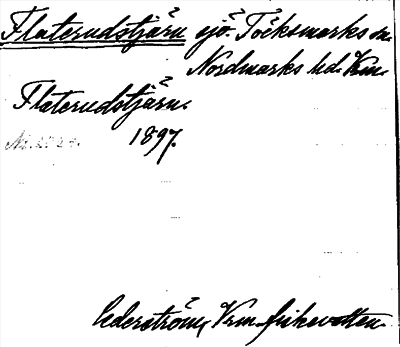 Flaterudstjärn sjö. Töcksmarks sn.
Nordmarks hd. Vrm.
Flaterudstjärn.
1897.
Cederström, Vrm. fiskevatten.